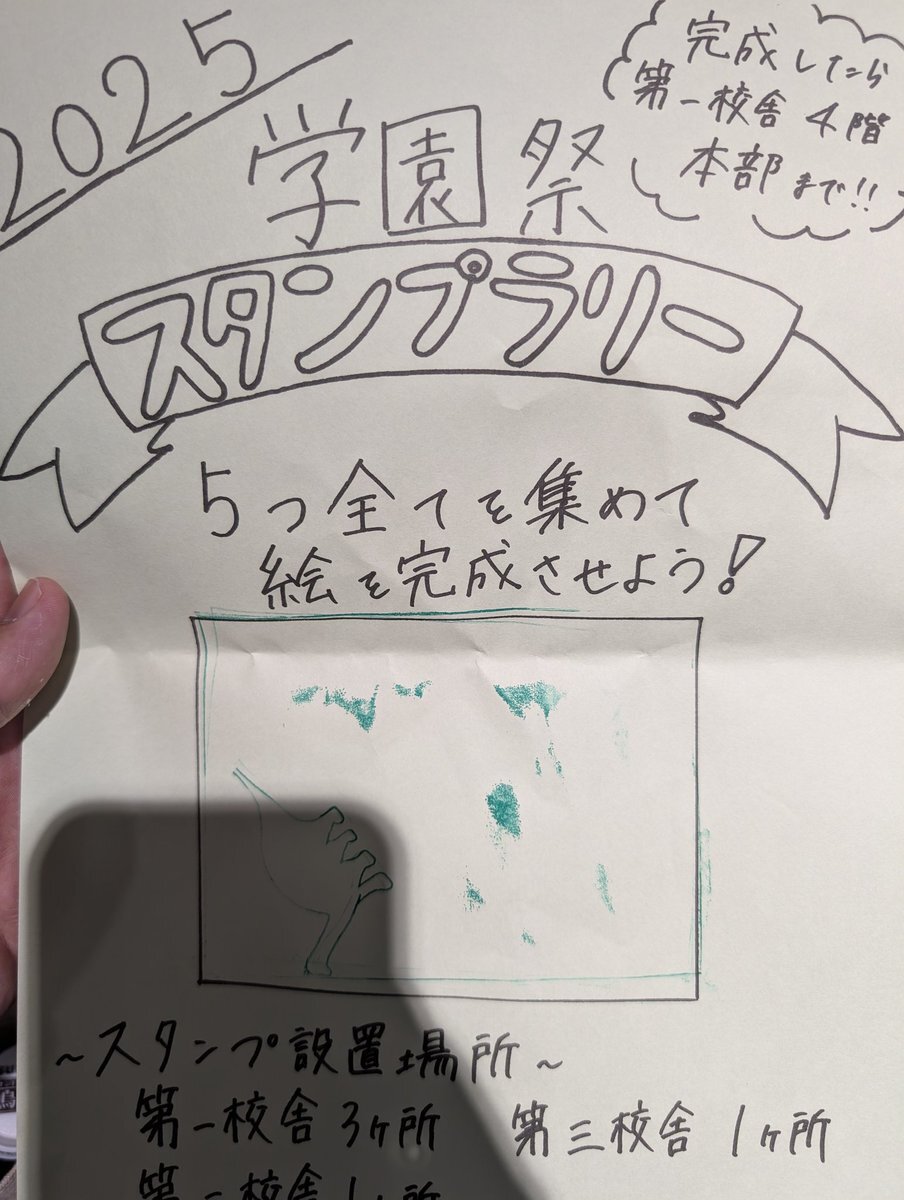 2025
学園祭
完成したら
第一校舎4階
本部まで!!
スタンプラリー
5つ全てを集めて
絵を完成させよう!
~スタンプ設置場所~
第一校舎3ヶ所 第三校舎1ヶ所
第二校舎1ヶ所